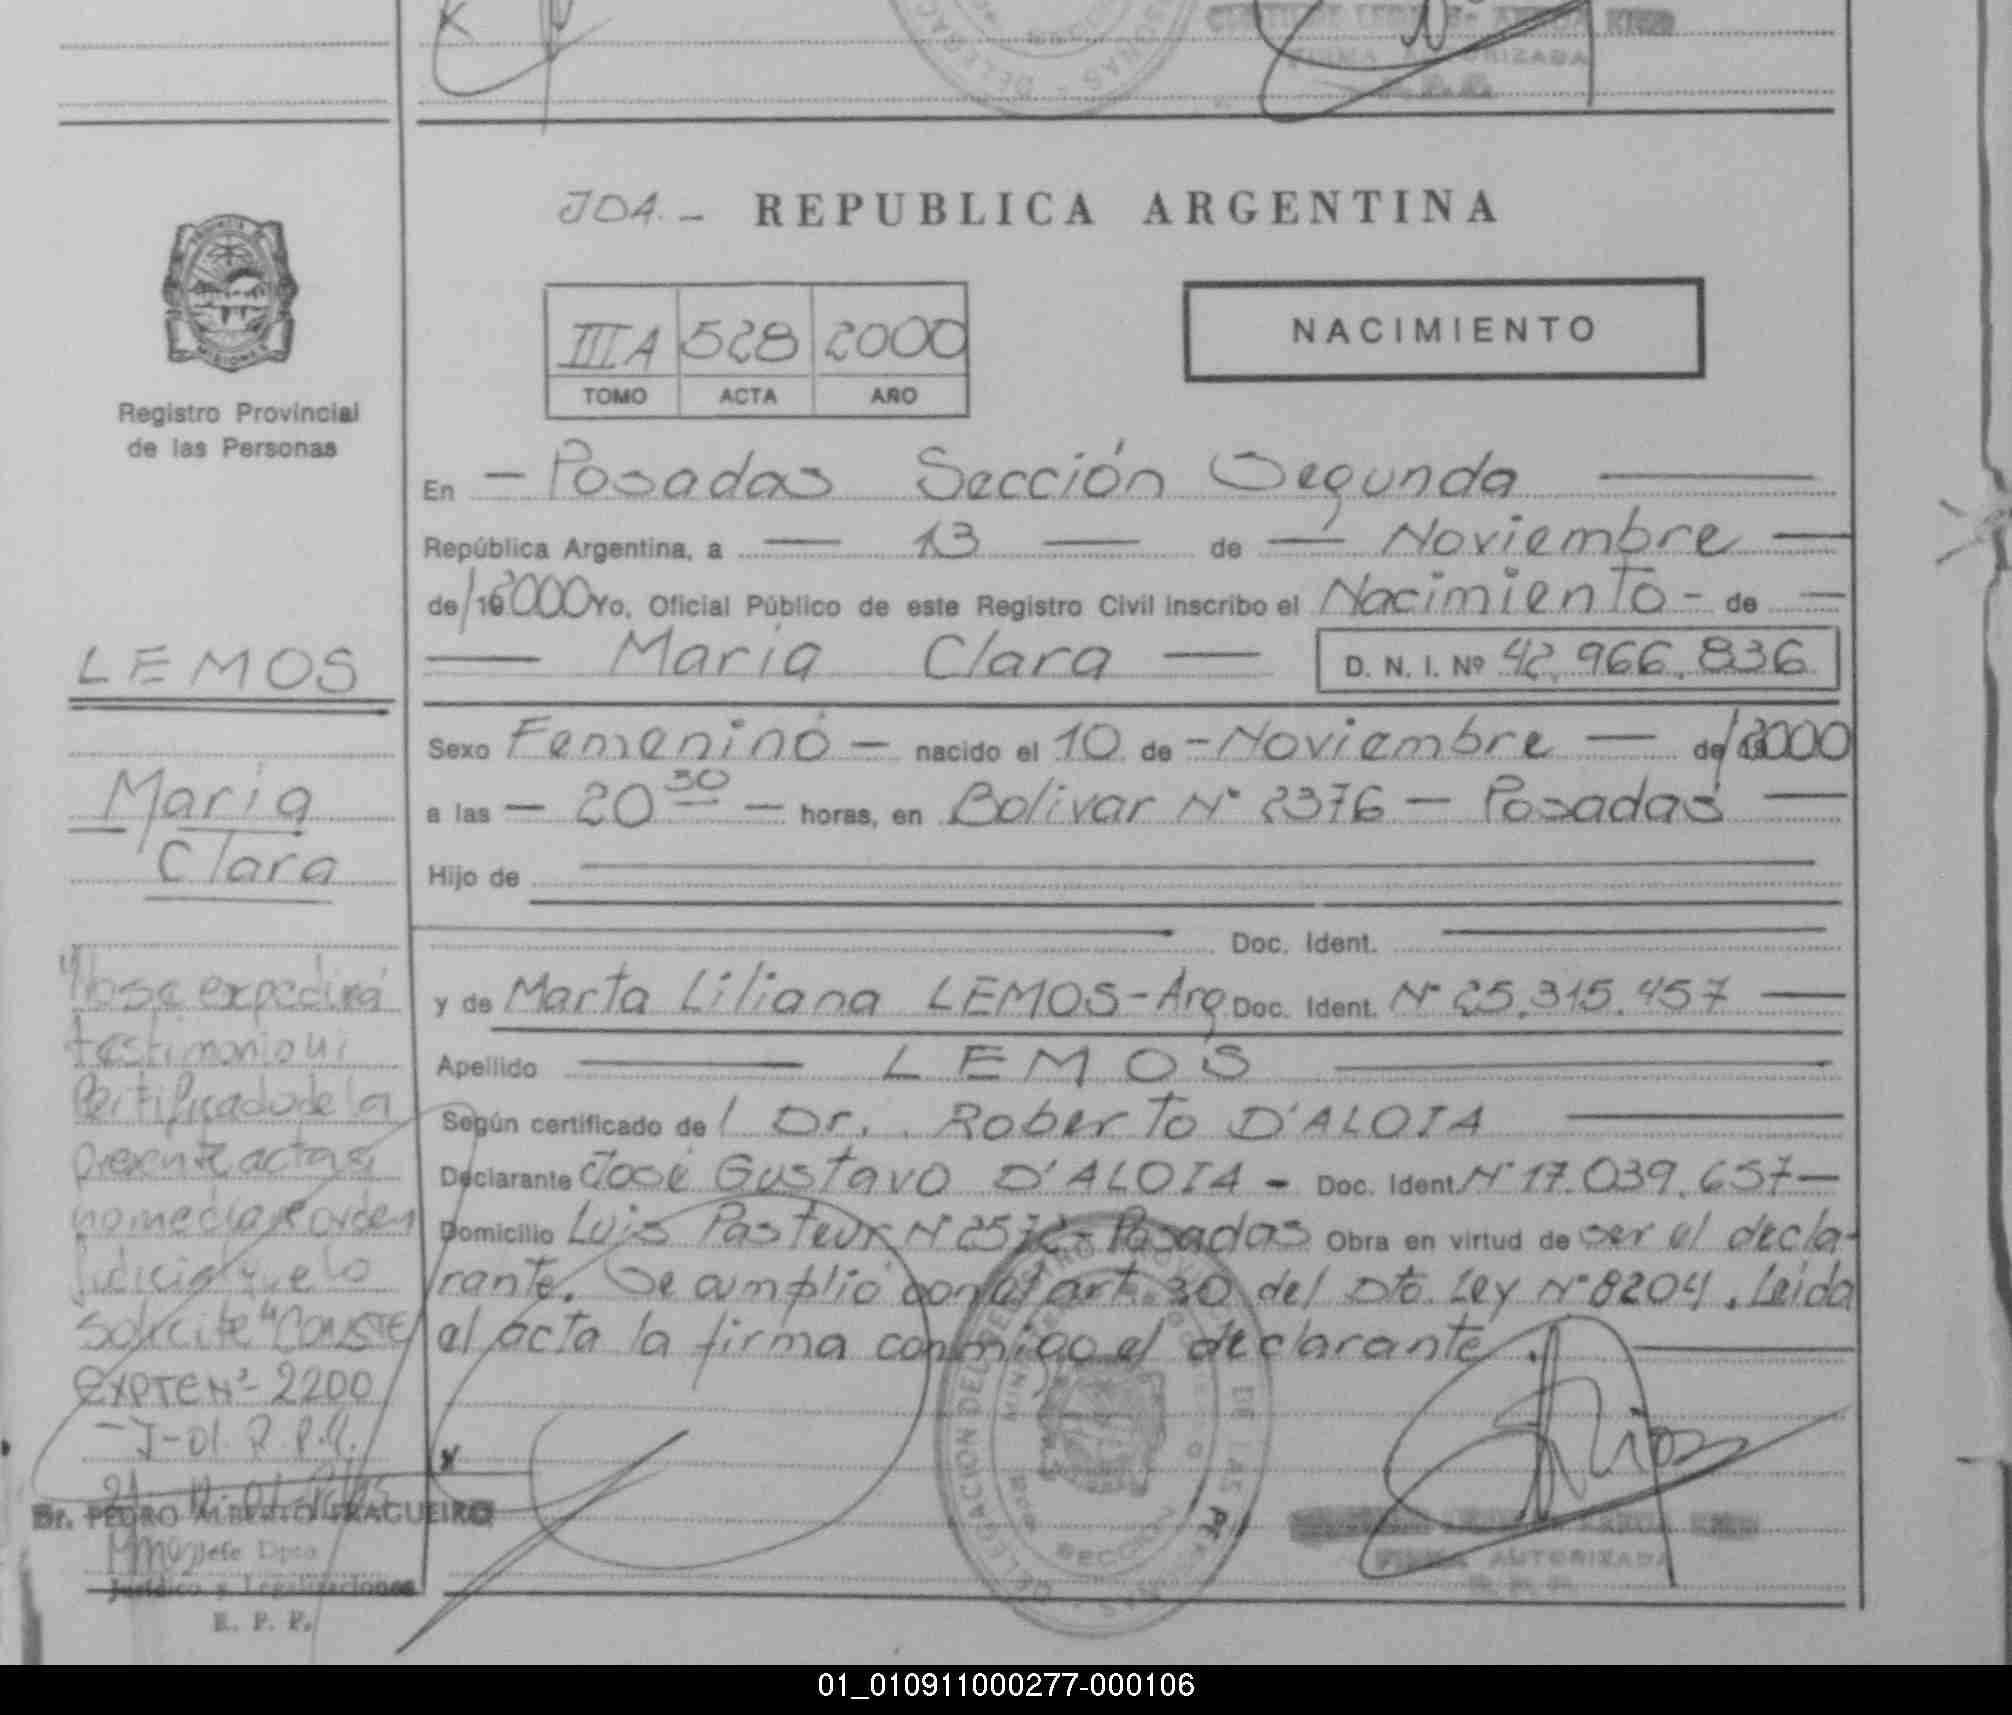 FIRMA AUTORIZADA
JDA.- REPUBLICA ARGENTINA
IIIA 528 2000
TOMO ACTA AÑO
NACIMIENTO
Registro Provincial
de las Personas
En - Posadas Sección Segunda
República Argentina, a 13 de Noviembre
de/19 2000 Yo, Oficial Público de este Registro Civil inscribo el Nacimiento - de
Maria Clara D. N. I. Nº 42.966.836
LEMOS
Maria
Clara
Sexo Femenino - nacido el 10 de - Noviembre - de/19 2000
a las - 20 30 - horas, en Bolivar Nº 2376 - Posadas
Hijo de
Doc. Ident.
y de Marta Liliana LEMOS - Arg Doc. Ident. Nº 25.315.457
Apellido LEMOS
Según certificado de l Dr. Roberto D'ALOIA
Declarante José Gustavo D'ALOIA - Doc. Ident Nº 17.039.657 -
Domicilio Luis Pasteur Nº 2572 - Posadas Obra en virtud de ser el decla-
rante. Se cumplió con el art. 30 del Dto. Ley Nº 8204. Leida
el acta la firma conmigo el declarante.
"No se expedirá
testimonio ni
Certificado de la
presente acta si
no mediare orden
Judicial que lo
solicite" CONSTE
EXPTE Nº 2200
- J-01. R.P.P.
Dr. PEDRO ALBERTO FRAGUEIRO
Jefe Dpto
Jurídico y Legalizaciones
R. P. P.
FIRMA AUTORIZADA
R. P. P.
01_010911000277-000106